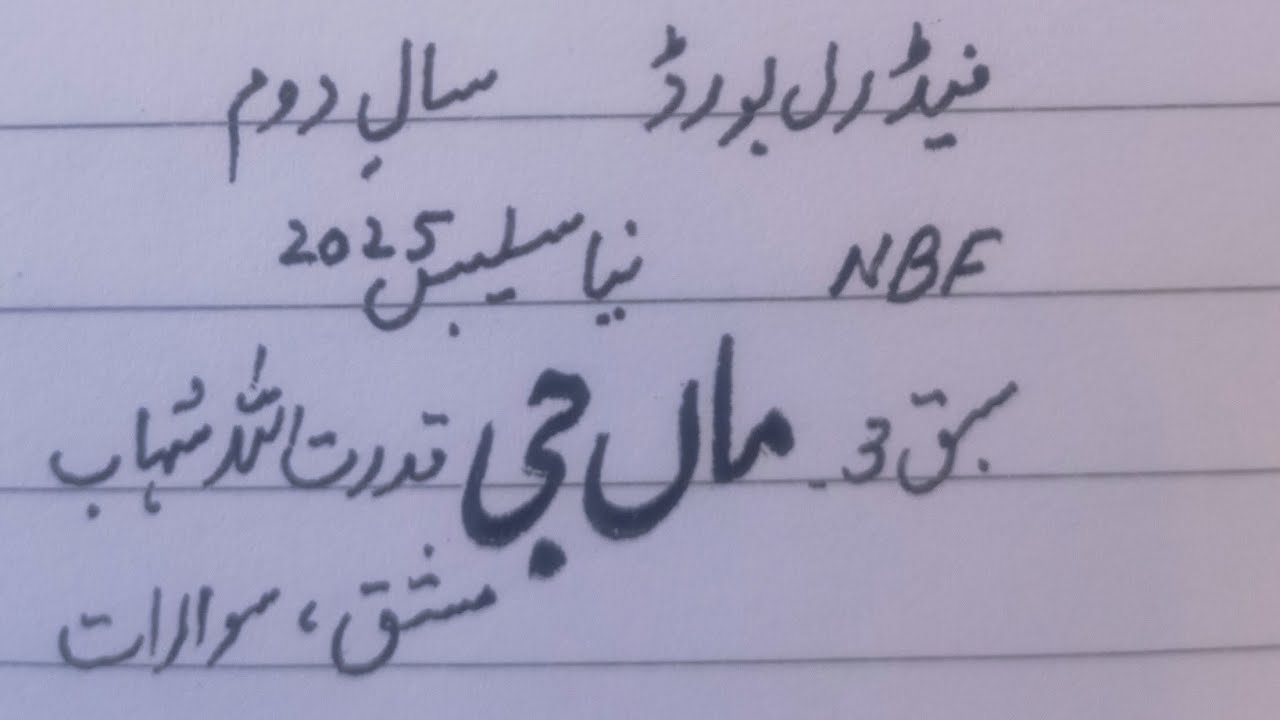 فیڈرل بورڈ سالِ دوم
NBF نیا سلیبس 2025
سبق 3۔ ماں جی قدرت اللہ شہاب
مشق، سوالات